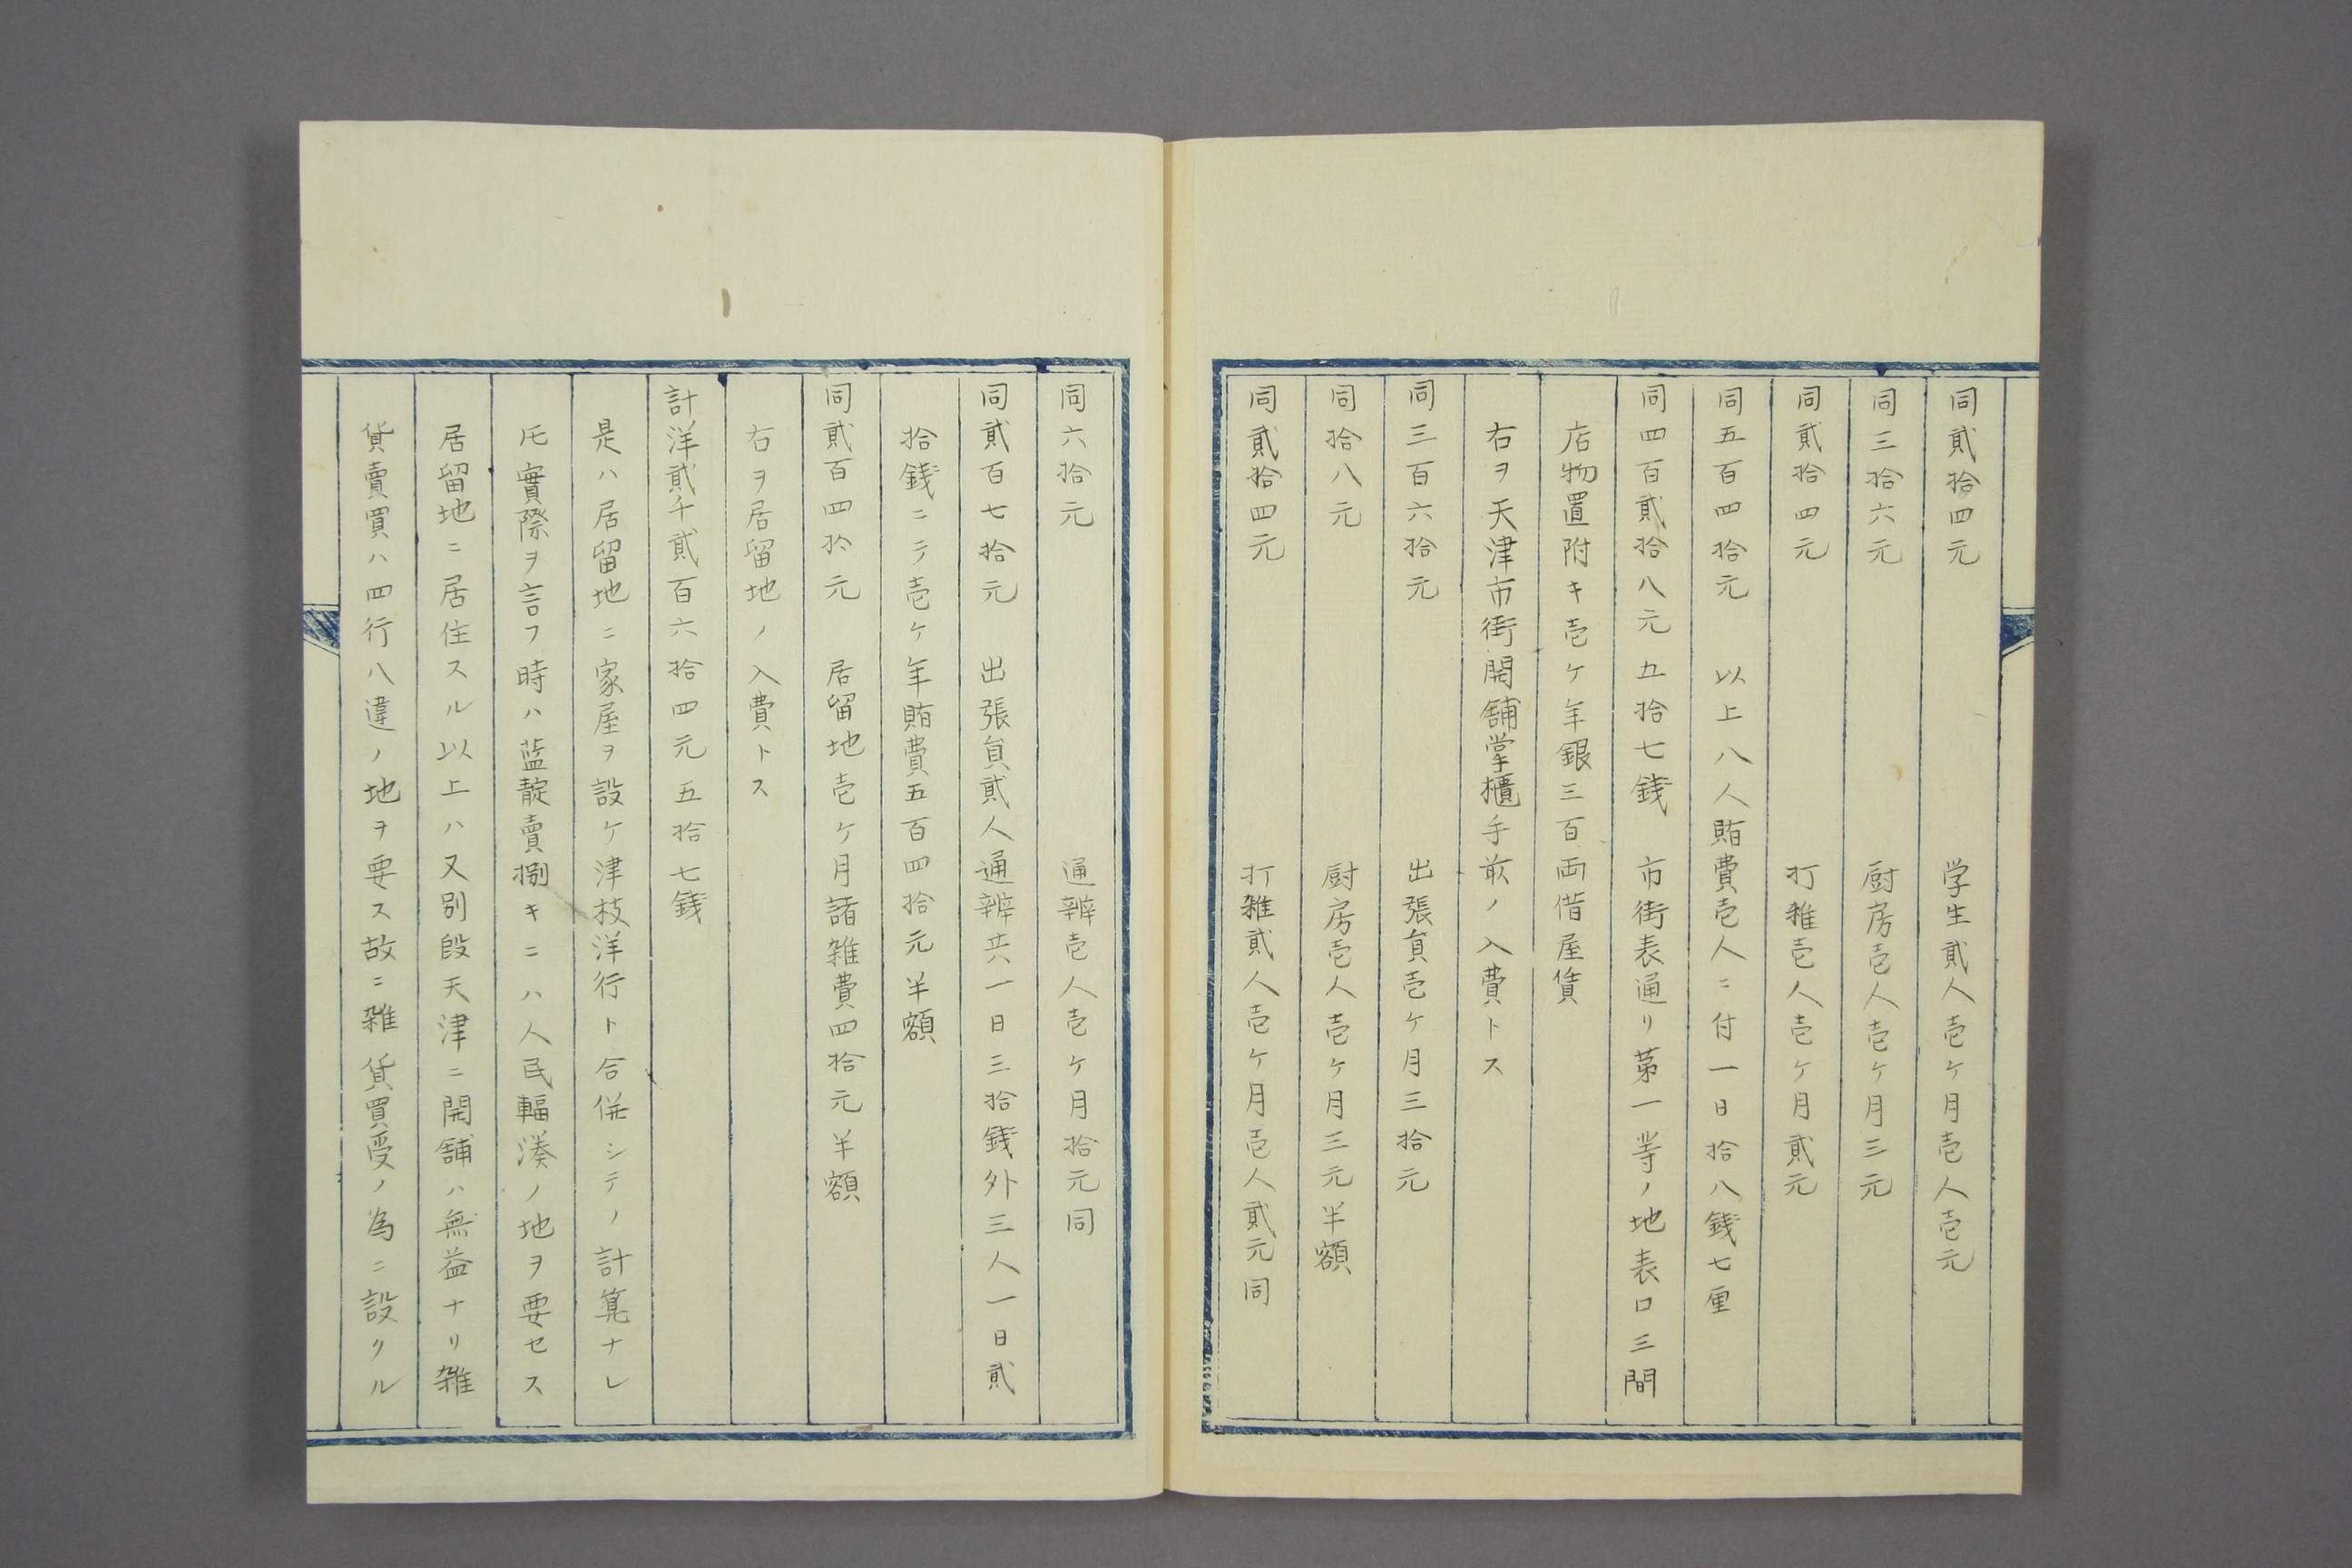 同貳拾四元　学生貳人壱ヶ月壱人壱元
同三拾六元　厨房壱人壱ヶ月三元
同貳拾四元　打雜壱人壱ヶ月貳元
同五百四拾元　以上八人賄費壱人ニ付一日拾八錢七厘
同四百貳拾八元五拾七錢　市街表通リ第一等ノ地表口三間
店物置附キ壱ヶ年銀三百両借屋賃
右ヲ天津市街開舖掌櫃手前ノ入費トス
同三百六拾元　出張員壱ヶ月三拾元
同拾八元　厨房壱人壱ヶ月三元半額
同貳拾四元　打雜貳人壱ヶ月壱人貳元同
同六拾元　通辨壱人壱ヶ月拾元同
同貳百七拾元　出張員貳人通辨共一日三拾錢外三人一日貳
拾錢ニテ壱ヶ年賄費五百四拾元半額
同貳百四拾元　居留地壱ヶ月諸雜費四拾元半額
右ヲ居留地ノ入費トス
計洋貳千貳百六拾四元五拾七錢
是ハ居留地ニ家屋ヲ設ケ津枝洋行ト合併シテノ計算ナレ
𪜈實際ヲ言フ時ハ藍靛賣捌キニハ人民輻湊ノ地ヲ要セス
居留地ニ居住スル以上ハ又別段天津ニ開舖ハ無益ナリ雜
貨賣買ハ四行八達ノ地ヲ要ス故ニ雜貨買受ノ為ニ設クル